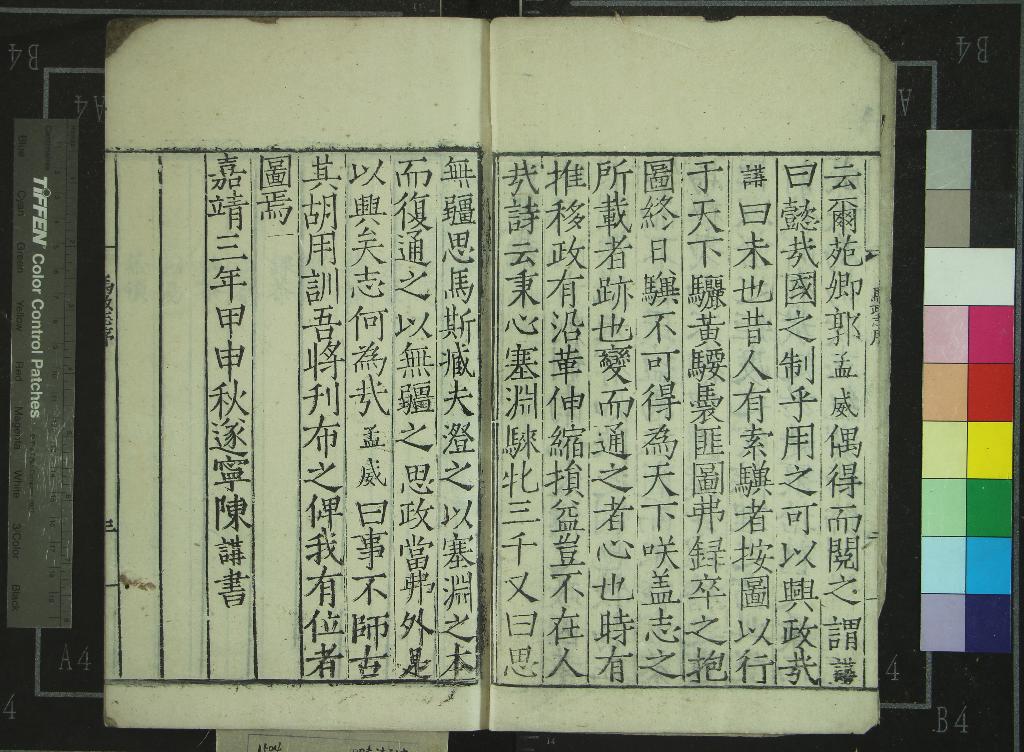 云爾苑卿郭孟威偶得而閱之謂講
曰懿㢤國之制乎用之可以興政㢤
講曰未也昔人有索驥者按圖以行
于天下驪黃騕褭匪圖弗録卒之抱
圖終日驥不可得為天下咲盖志之
所載者跡也變而通之者心也時有
推移政有沿革伸縮損益豈不在人
㢤詩云秉心塞淵騋牝三千又曰思
無疆思馬斯臧夫澄之以塞淵之本
而復通之以無疆之思政當弗外是
以興矣志何為㢤孟威曰事不師古
其胡用訓吾將刋布之俾我有位者
圖焉
嘉靖三年甲申秋遂寧陳講書
三
TIFFEN Color Control Patches
Blue
Cyan
Green
Yellow
Red
Magenta
White
3/Color
Black
B4
A4
B4
A
A4
4
4
B4